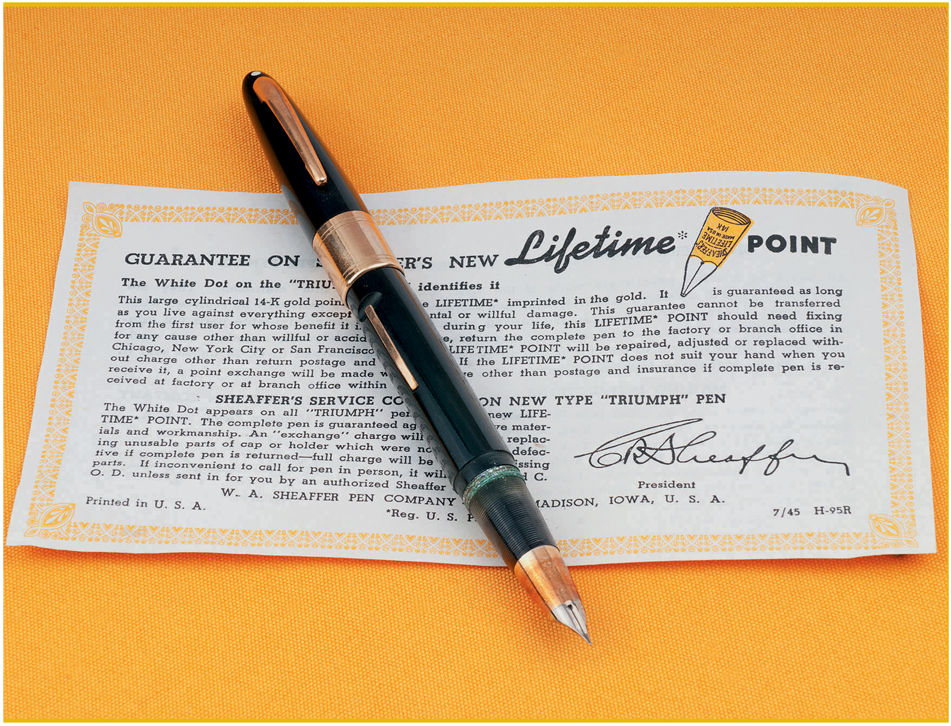 GUARANTEE ON S ER'S NEW Lifetime* POINT
SHEAFFER'S
LIFETIME
MADE IN USA
14K
The White Dot on the "TRIU identifies it
This large cylindrical 14-K gold poin e LIFETIME* imprinted in the gold. It is guaranteed as long
as you live against everything except ntal or willful damage. This guarantee cannot be transferred
from the first user for whose benefit it i during your life, this LIFETIME* POINT should need fixing
for any cause other than willful or accid e, return the complete pen to the factory or branch office in
Chicago, New York City or San Francisco LIFETIME* POINT will be repaired, adjusted or replaced with-
out charge other than return postage and If the LIFETIME* POINT does not suit your hand when you
receive it, a point exchange will be made w e other than postage and insurance if complete pen is re-
ceived at factory or at branch office within
SHEAFFER'S SERVICE CO ON NEW TYPE "TRIUMPH" PEN
The White Dot appears on all "TRIUMPH" pe new LIFE-
TIME* POINT. The complete pen is guaranteed ag ve mater-
ials and workmanship. An "exchange" charge will replac-
ing unusable parts of cap or holder which were no defec-
tive if complete pen is returned—full charge will be issing
parts. If inconvenient to call for pen in person, it wil d C.
O. D. unless sent in for you by an authorized Sheaffer
W. A. SHEAFFER PEN COMPANY MADISON, IOWA, U. S. A.
Printed in U. S. A.
*Reg. U. S. P
Sheaffer
President
7/45 H-95R